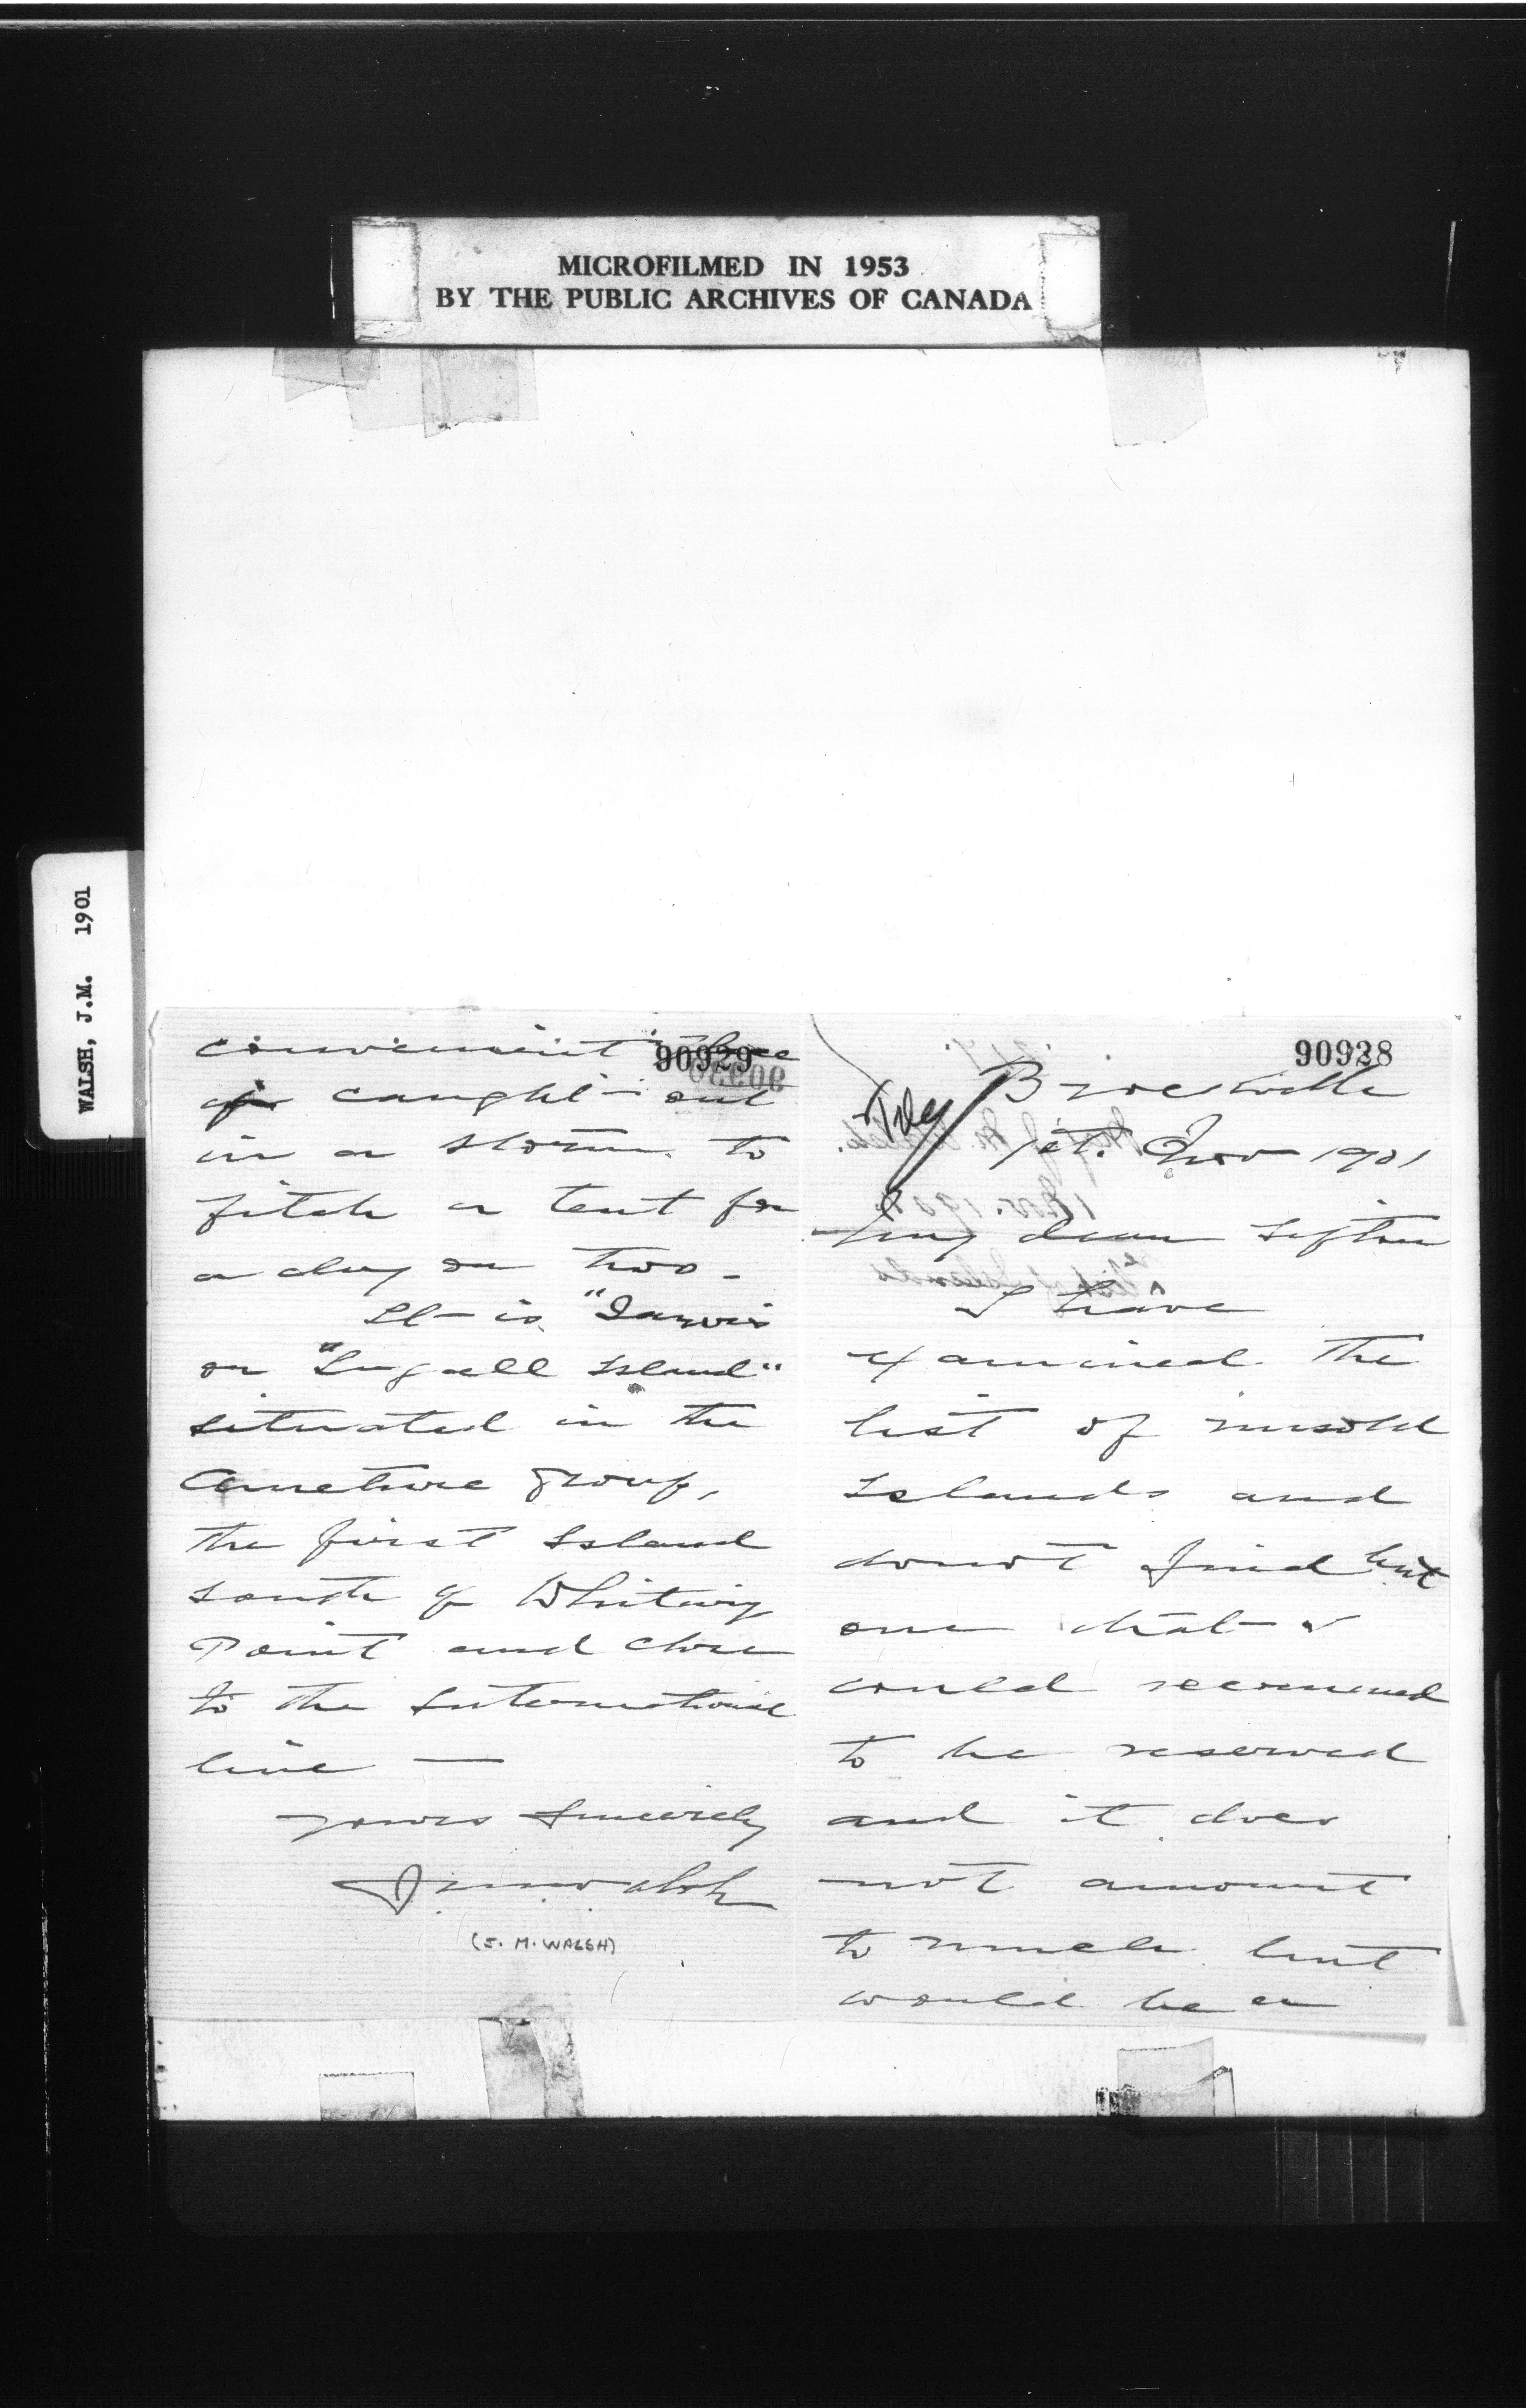 MICROFILMED IN 1953
BY THE PUBLIC ARCHIVES OF CANADA
WALSH, J.M. 1901
90928
Brockville
1st. Nov 1901
My dear Sifton
I have
examined the
list of unsold
Islands and
donot find but
one that I
could recommend
to be reserved
and it does
not amount
to much but
would be a
90929
convenient place
if caught out
in a storm to
pitch a tent for
a day or two -
It is "Jarvis
or "Lugall Island"
situated in the
group,
the first Island
south of Whiting
Point and close
to the International
line —
yours Sincerely
J M Walsh
(J. M. WALSH)